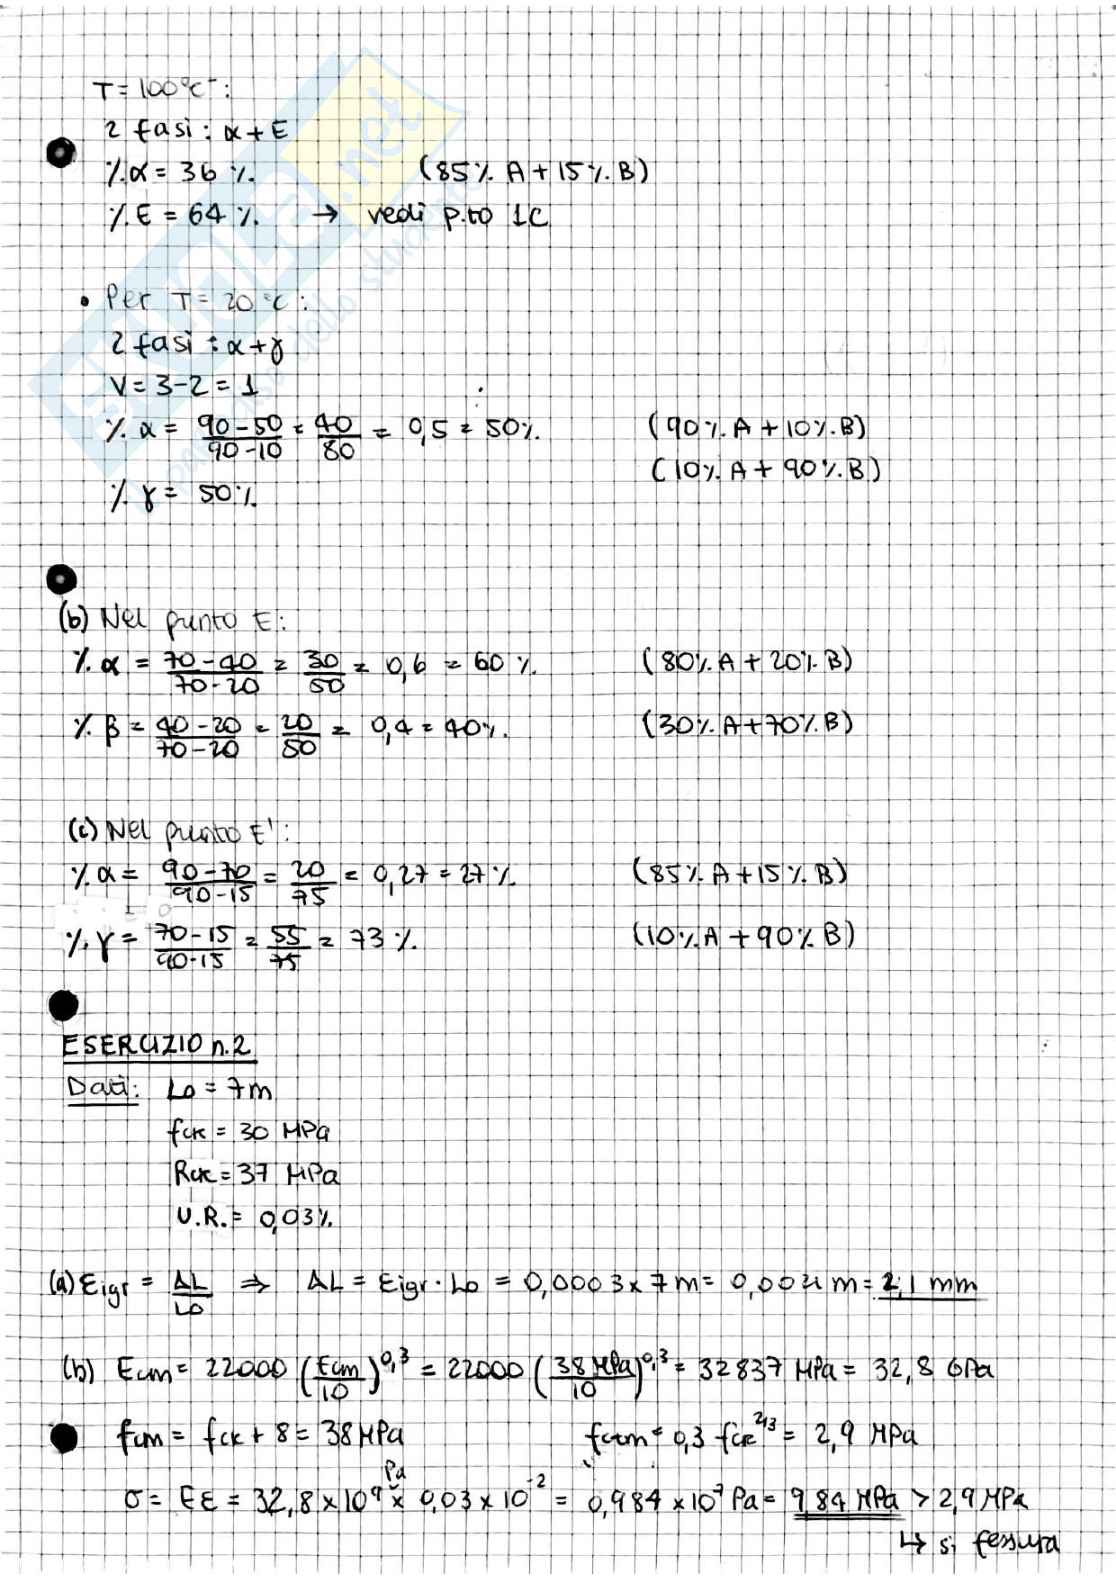 T = 100°C⁺ :
2 fasi : α + E
% α = 36 % (85% A + 15% B)
% E = 64 % → vedi p.to 1C
• Per T = 20 °C :
2 fasi : α + γ
V = 3 - 2 = 1
% α = (90 - 50)/(90 - 10) = 40/80 = 0,5 = 50% (90% A + 10% B)
(10% A + 90% B)
% γ = 50%
(b) Nel punto E :
% α = (70 - 40)/(70 - 20) = 30/50 = 0,6 = 60 % (80% A + 20% B)
% β = (40 - 20)/(70 - 20) = 20/50 = 0,4 = 40% (30% A + 70% B)
(c) Nel punto E' :
% α = (90 - 70)/(90 - 15) = 20/75 = 0,27 = 27 % (85% A + 15% B)
% γ = (70 - 15)/(90 - 15) = 55/75 = 73 % (10% A + 90% B)
ESERCIZIO n.2
Dati : L₀ = 7m
fck = 30 MPa
Rck = 37 MPa
U.R. = 0,03%
(a) εigr = ΔL/L₀ ⇒ ΔL = εigr · L₀ = 0,0003 x 7 m = 0,0021 m = 2,1 mm
(b) Ecm = 22000 (fcm/10)^0,3 = 22000 (38 MPa/10)^0,3 = 32837 MPa = 32,8 GPa
fcm = fck + 8 = 38 MPa fctm = 0,3 fck^2/3 = 2,9 MPa
σ = Eε = 32,8 x 10⁹ Pa x 0,03 x 10⁻² = 0,984 x 10⁷ Pa = 9,84 MPa > 2,9 MPa
↳ si fessura